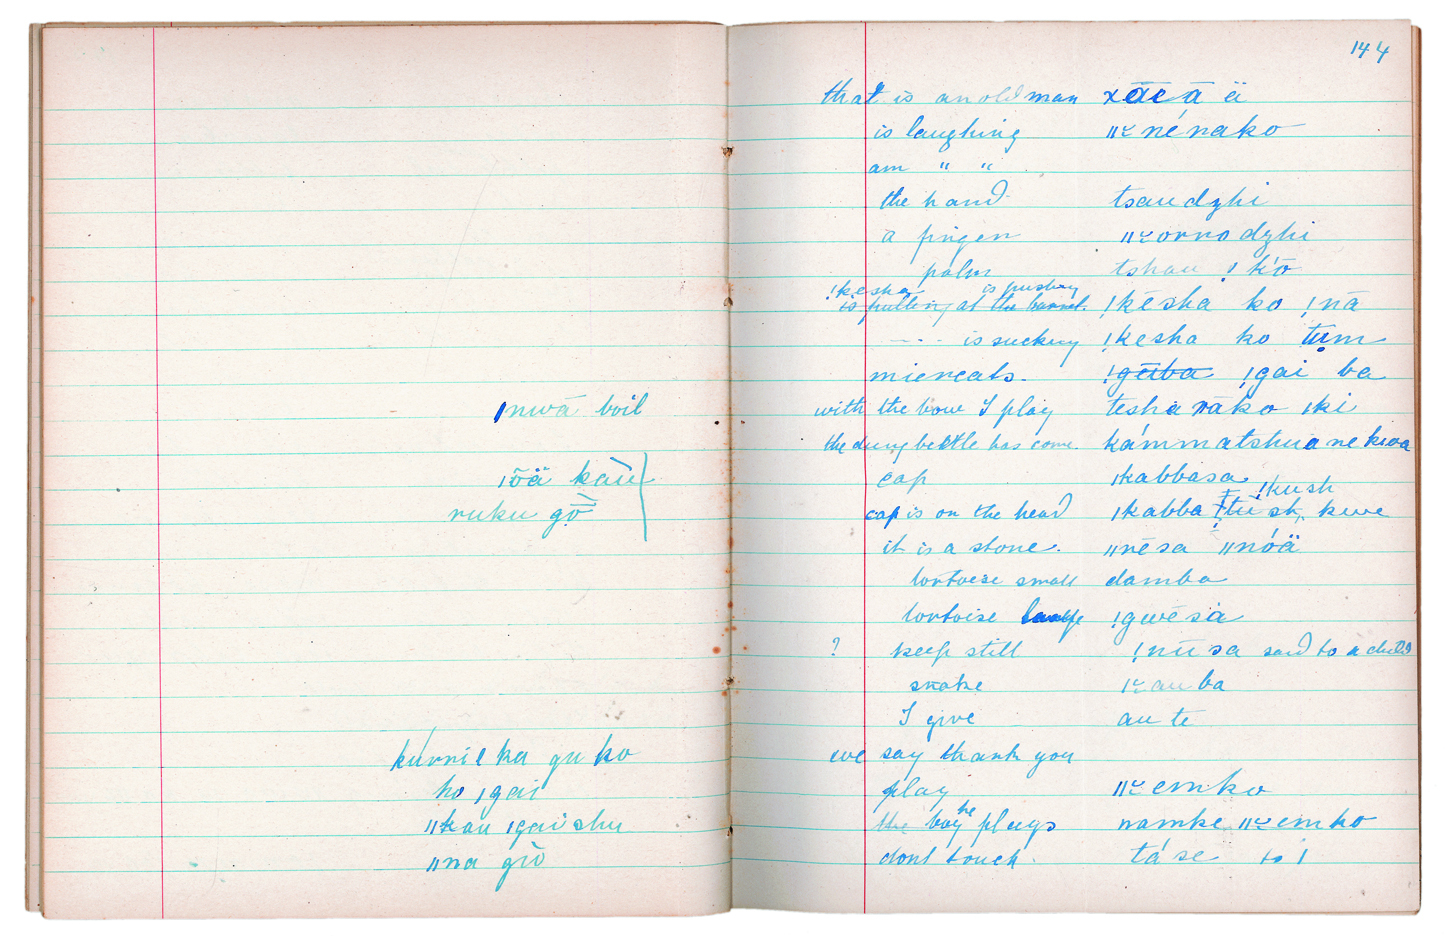 ınwā boil
ıõä kaù
ruku gō
kúrril ka gu ko
ho ıgai
ǁkau ıgai shu
ǁna gò
144
that is an old man xāea ā ä
is laughing ǁ nénako
am " "
the hand tsau dzhi
a finger ǁ orro dzhi
palm tshau !
!kesha is pushing
is pulling at the barrel. !kēsha ko !nā
- - - is sucking !kesha ko tum
miercats. !gēiba !gai ba
with the bow I play tesha rāko ıki
the dung bettle has come kámmatshua ne kioa
cap ıkabbasa
!kush
cap is on the head ıkabba kwe
it is a stone. ǁnēsa ǁnóä
tortoise small damba
tortoise large !gwēsa
? keep still !nūsa said to a child
snake ı au ba
I give au te
we say thank you
play ǁ emko
the boy he plays namke ǁ emko
dont touch. tá se